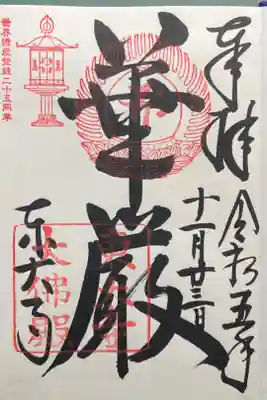 奉拝
令和五年
十一月廿三日
華嚴
東大寺
東大寺
大佛殿
世界遺産登録二十五周年